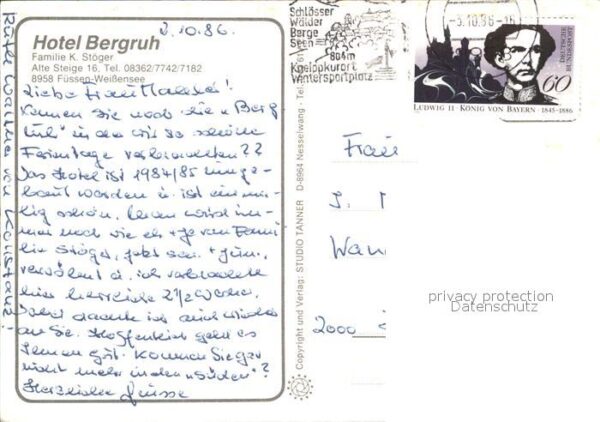 3.10.86.
Hotel Bergruh
Familie K. Stöger
Alte Steige 16, Tel. 08362/7742/7182
8958 Füssen-Weißensee
Liebe Frau
Kennen Sie noch die „Berg
ruh" in der wir so schöne
Ferientage verbrachten??
Das Hotel ist 1984/85 umge-
baut worden u. ist ein
schön. Man wird im-
mer noch wie eh + je von Fami-
lie Stöger, jetzt sen. + jun.,
verwöhnt u. ich verbrachte
hier herrliche 2½ Wochen.
Jetzt dachte ich auch wieder
an Sie. Hoffentlich geht es
Ihnen gut. Kommen Sie gar
nicht mehr in den „Süden"?
Herzliche Grüsse
Konstanz!
Copyright und Verlag: STUDIO TANNER D-8964 Nesselwang · Tel.
Schlösser
Wälder
Berge
Seen
804m
Kneippkurort
Wintersportplatz
-3.10.86-16
DEUTSCHE BUNDESPOST
60
LUDWIG II · KÖNIG VON BAYERN 1845-1886
Frau
J.
Wan
2000
privacy protection
Datenschutz